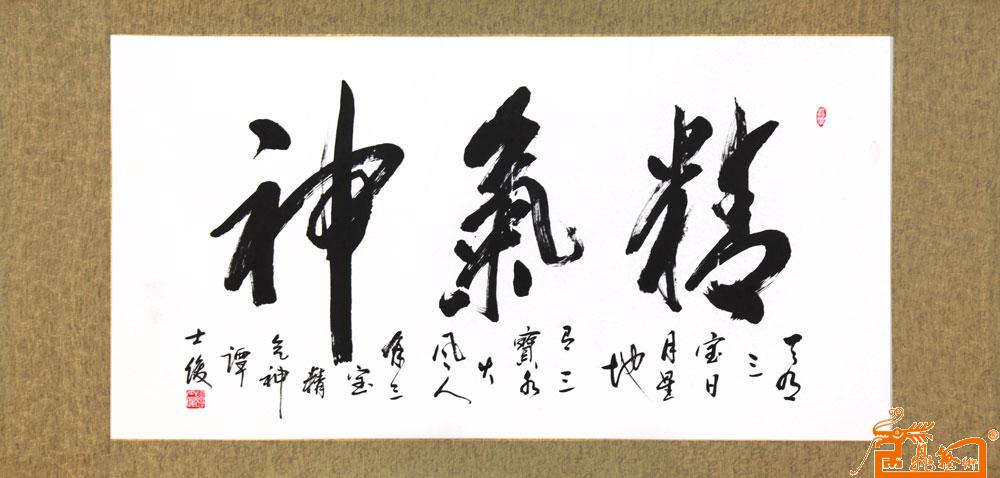 精氣神
天有
三
宝日
月星
地
有三
寶水
火
風人
有三
宝
精
气神
譚
士俊